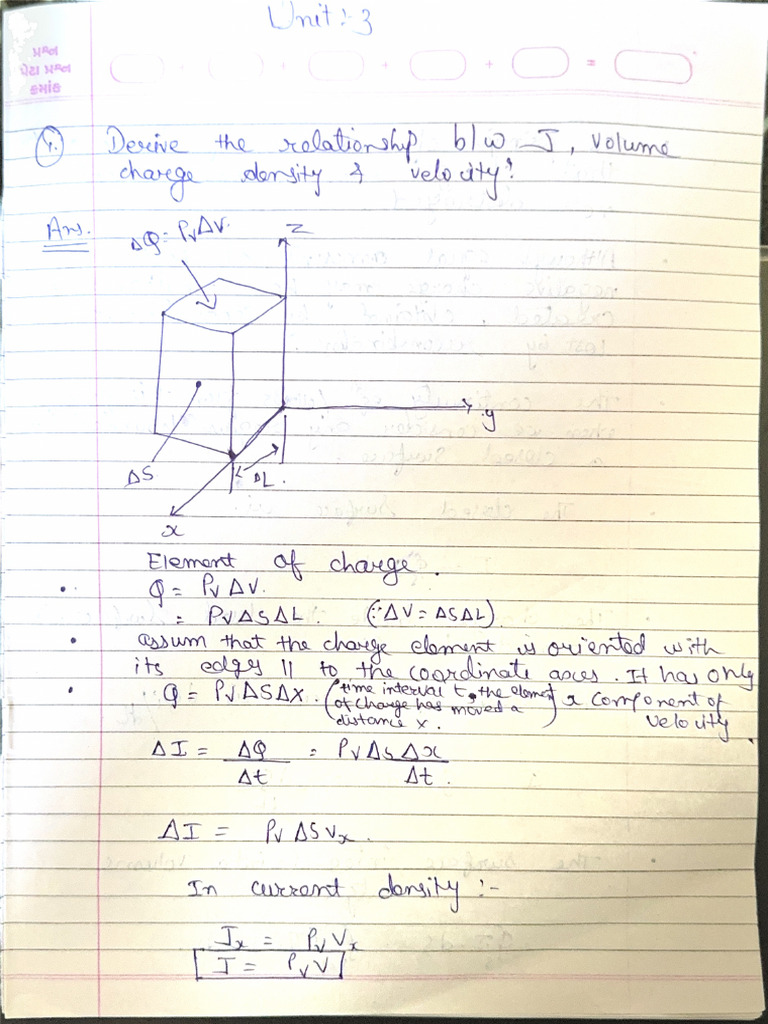 Unit:-3
પ્રશ્ન
પેટા પ્રશ્ન
ક્રમાંક
+ + + + =
Q. Derive the relationship b/w J, volume
charge density & velocity?
Ans.
ΔQ = Pv ΔV.
z
y
ΔS
ΔL.
x
Element of charge.
• Q = Pv ΔV.
= Pv ΔS ΔL. (∵ ΔV = ΔSΔL)
• assum that the charge element is oriented with
its edges || to the coordinate axes. It has only
x component of
velocity.
• Q = Pv ΔS Δx. (time interval t, the element
of charge has moved a
distance x.)
ΔI = ΔQ/Δt = Pv Δs Δx/Δt.
ΔI = Pv ΔS Vx.
In current density :-
Jx = Pv Vx
J = Pv V